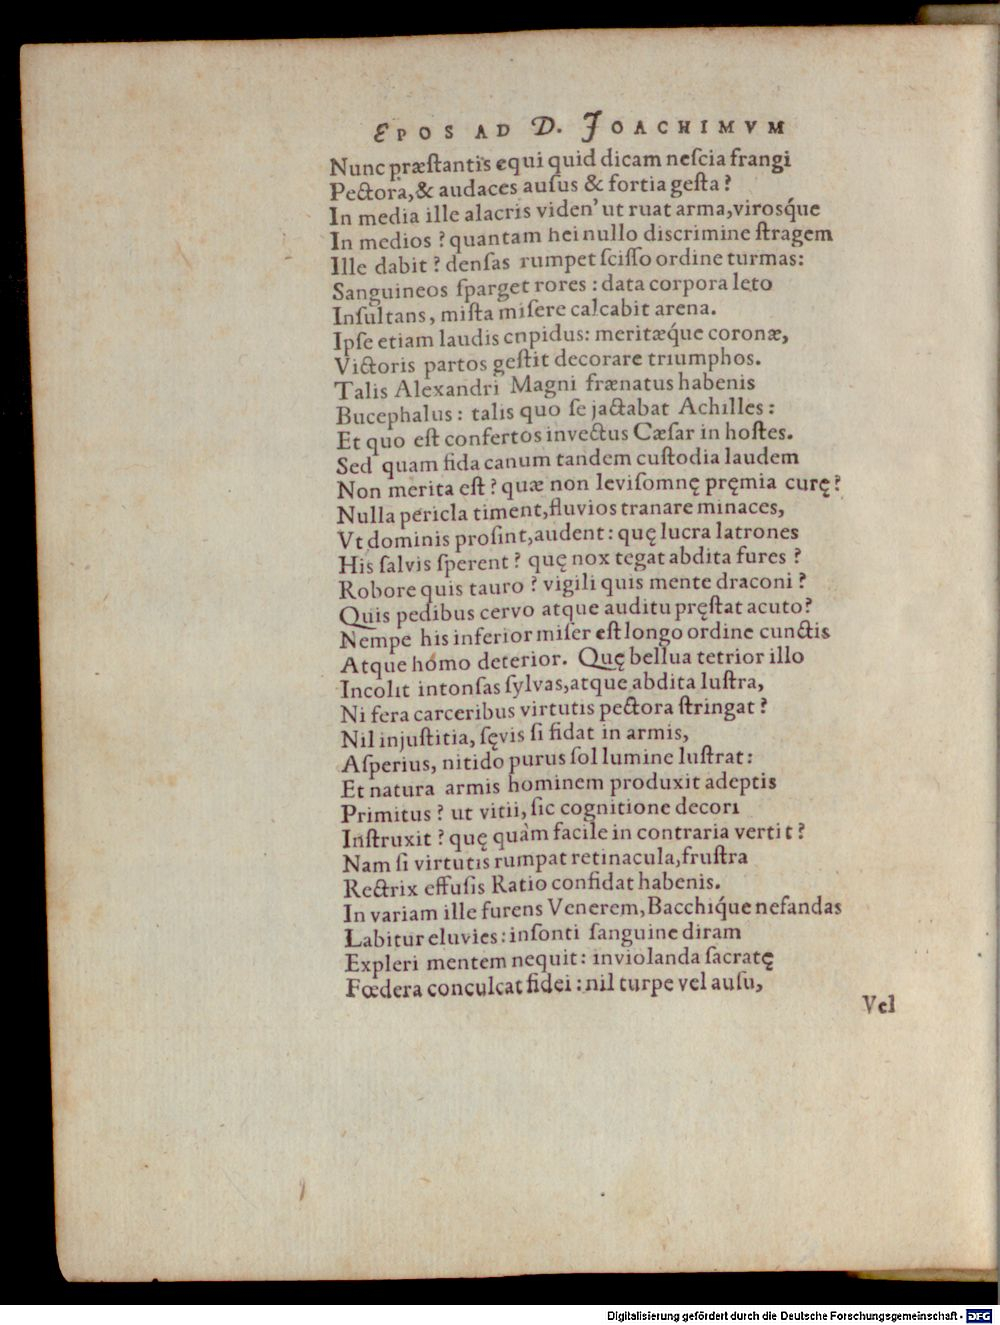 EPOS AD D. JOACHIMVM
Nunc præſtantis equi quid dicam neſcia frangi
Pectora, & audaces auſus & fortia geſta?
In media ille alacris viden' ut ruat arma, virosq́ue
In medios? quantam hei nullo discrimine ſtragem
Ille dabit? denſas rumpet ſciſſo ordine turmas:
Sanguineos ſparget rores: data corpora leto
Inſultans, miſta miſere calcabit arena.
Ipſe etiam laudis cnpidus: meritæq́ue coronæ,
Victoris partos geſtit decorare triumphos.
Talis Alexandri Magni frænatus habenis
Bucephalus: talis quo ſe jactabat Achilles:
Et quo eſt confertos invectus Cæſar in hoſtes.
Sed quam fida canum tandem cuſtodia laudem
Non merita eſt? quæ non leviſomnę pręmia curę?
Nulla pericla timent, fluvios tranare minaces,
Vt dominis proſint, audent: quę lucra latrones
His ſalvis ſperent? quę nox tegat abdita fures?
Robore quis tauro? vigili quis mente draconi?
Quis pedibus cervo atque auditu pręſtat acuto?
Nempe his inferior miſer eſt longo ordine cunctis
Atque homo deterior. Quę bellua tetrior illo
Incolit intonſas ſylvas, atque abdita luſtra,
Ni fera carceribus virtutis pectora ſtringat?
Nil injuſtitia, ſęvis ſi fidat in armis,
Aſperius, nitido purus ſol lumine luſtrat:
Et natura armis hominem produxit adeptis
Primitus? ut vitii, ſic cognitione decori
Inſtruxit? quę quàm facile in contraria vertit?
Nam ſi virtutis rumpat retinacula, fruſtra
Rectrix effuſis Ratio confidat habenis.
In variam ille furens Venerem, Bacchiq́ue nefandas
Labitur eluvies: inſonti ſanguine diram
Expleri mentem nequit: inviolanda ſacratę
Fœdera conculcat fidei: nil turpe vel auſu,
Vel
Digitalisierung gefördert durch die Deutsche Forschungsgemeinschaft - DFG